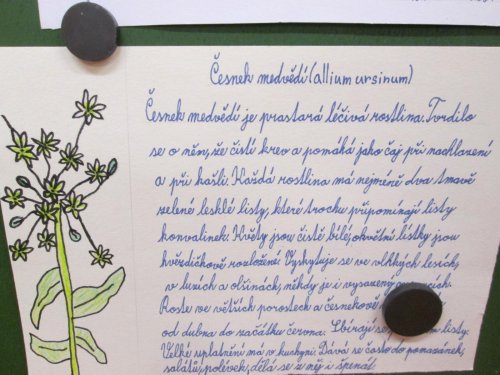 Česnek medvědí (allium ursinum)
Česnek medvědí je prastará léčivá rostlina. Tvrdilo
se o něm, že čistí krev a pomáhá jako čaj při nachlazení
a při kašli. Každá rostlina má nejméně dva tmavě
zelené lesklé listy, které trochu připomínají listy
konvalinek. Květy jsou čistě bílé, okvětní lístky jsou
hvězdičkově rozložené. Vyskytuje se ve vlhkých lesích,
v luzích a olšinách, někdy je i vysazený
Roste ve větších porostech a česnekově
od dubna do začátku června. Sbírají se listy.
Velké uplatnění má v kuchyni: Dává se často do pomazánek,
salátů, polévek, dělá se z něj i špenát.